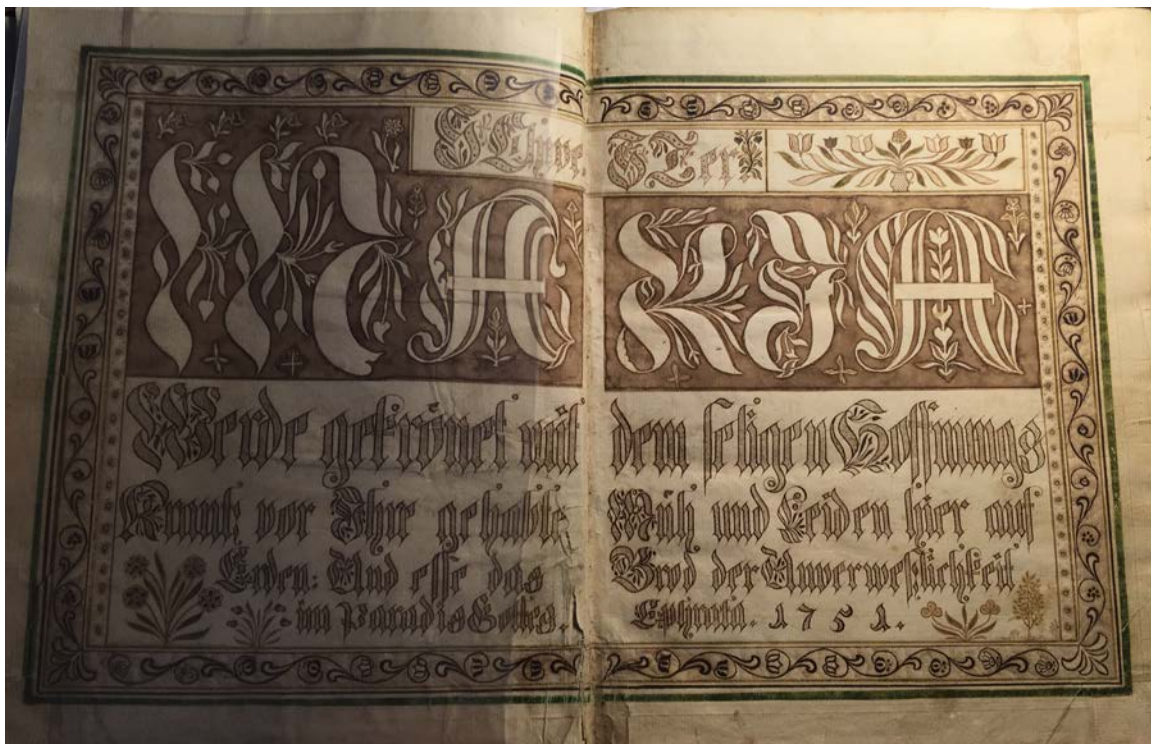 MARIA
Werde gekrönet mit dem seligen Hoffnungs
Krantz vor Ihr gehabte Müh und Leiden hier auf
Erden: Und esse das Brod der Unverweßlichkeit
im Paradis Gottes. Ephrata. 1751.